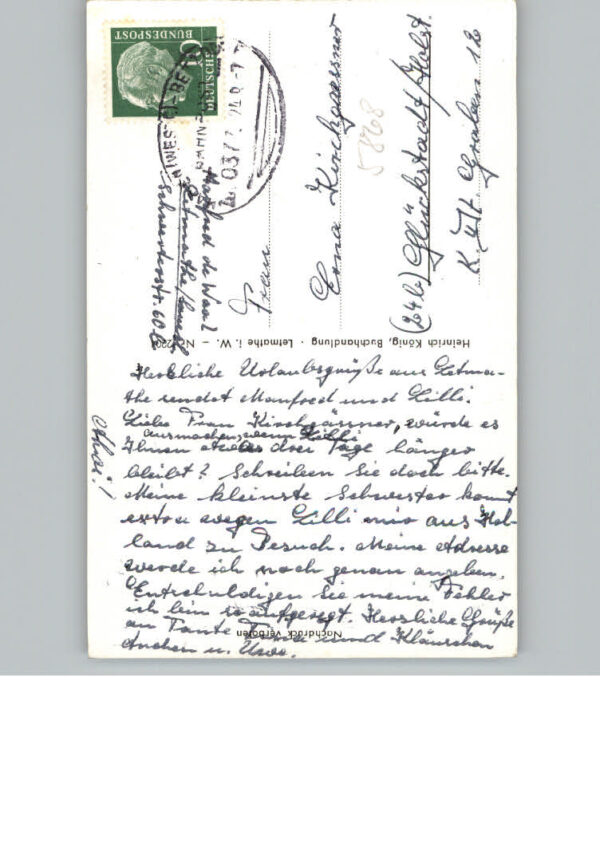 DEUTSCHE
BUNDESPOST
10
BAHNPOST
Zug 0377
Manfred de Waal
Letmathe
Schwerterstr. 60
Frau
Erna Kirchgaessner
(24b) Glückstadt/Holst.
K. Utt. Graben 12
58768
Heinrich König, Buchhandlung · Letmathe i. W. –
Herzliche Urlaubsgrüße aus Letma-
the sendet Manfred und Lilli.
Liebe Frau Kirchgässner, würde es
Ihnen etwas ausmachen, wenn Lilli drei Tage länger
bleibt? Schreiben Sie doch bitte.
Meine kleinste Schwester kommt
extra wegen Lilli mir aus Hol-
land zu Besuch. Meine Adresse
werde ich noch genau angeben.
Entschuldigen Sie meine Fehler
ich bin so aufgeregt. Herzliche Grüße
an Tante und Kläuschen
Anchen u. Uwe.
Nachdruck verboten